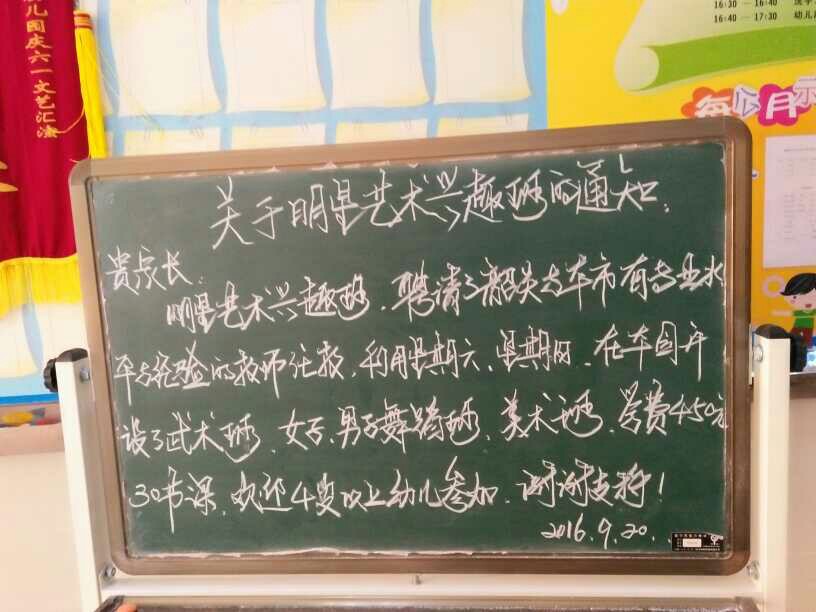 儿园庆六一文艺汇演
16:30 — 16:40
16:40 — 17:30 幼儿
每。月示
关于明星艺术兴趣班的通知:
贵家长:
明星艺术兴趣班,聘请了韶关本市有专业水
平与经验的教师任教,利用星期六、星期日,在本园开
设了武术班、女子、男子舞蹈班、美术班,学费450元
30节课,欢迎4岁以上幼儿参加,谢谢支持!
2016.9.20.